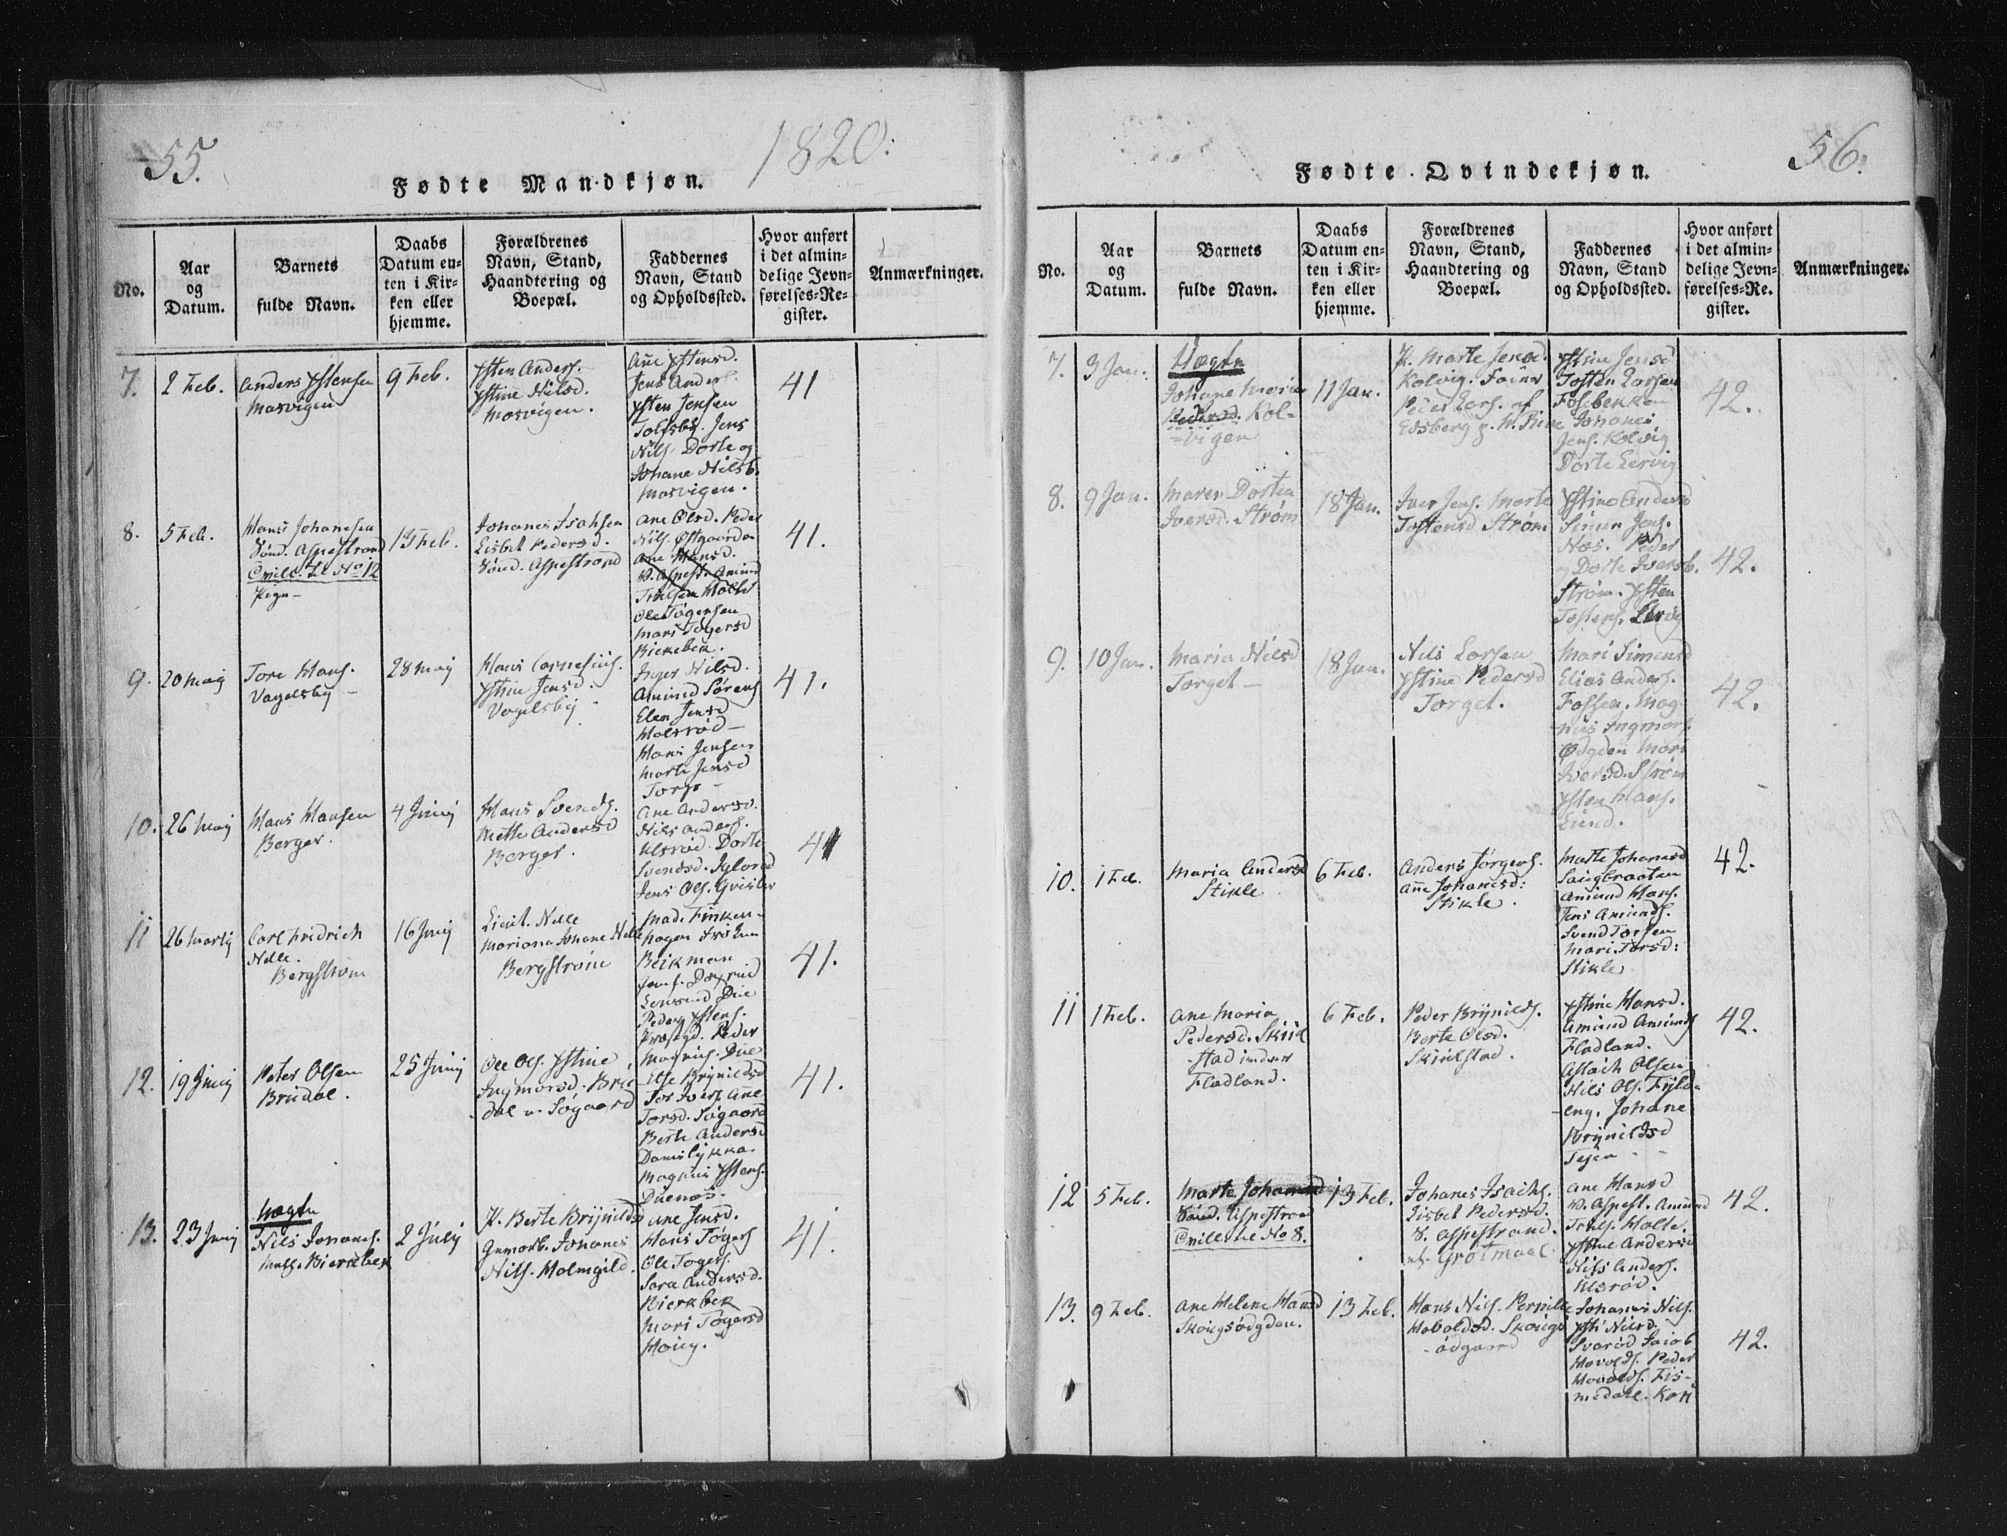 55.
1820.
Fødte Mandkjøn.
No.
Aar
og
Datum.
Barnets
fulde Navn.
Daabs
Datum en-
ten i Kir-
ken eller
hjemme.
Forældrenes
Navn, Stand,
Haandtering og
Boepæl.
Faddernes
Navn, Stand
og Opholdssted.
Hvor anført
i det almin-
delige Jevn-
førelses-Re-
gister.
Anmærkninger.
7.
2 Feb.
Anders Ystensen
Mosvigen
9 Feb.
Ysten Anders.
Ystine Nilsd.
Mosvigen.
Ane Ystensd.
Jens Anders.
Ysten Jensen
Tolfsby. Jens
Nils. Dorte og
Johane Nilsb.
Mosvigen.
41
8.
5 Feb.
Hans Johanesen
Sønd. Aspestrand
Tvill. til No 12
Pige
13 Feb.
Johanes Isaksen
Lisbet Pedersd.
Sønd. Aspestrand
Ane Olsd. Peder
Nils. Østgaarden
Ane Hansd.
Ole Togersen
Mari Togersd
Bierkebek.
41.
9.
20 Maij
Tore Hans.
Vagelsby
28 Maij
Hans Cornelius.
Ystine Jensd.
Vogelsby
Inger Nilsd.
Amund Sørens.
Elen Jensd
Holsrød
Hans Jensen
Marte Jensd
Torp
41.
10.
26 Maij
Hans Hansen
Berger.
4 Junij
Hans Svends.
Mette Andersd
Berger.
Ane Andersd.
Nils Anders.
Ulsrød. Dorte
Svendsd. Iglerød
Jens Ols. Gvisler
41
11
26 Martij
Carl Fridrich
Nelle.
Bergstrøm
16 Junij
Lieut. Nelle
Mariana Johane Nelle
Bergstrøm
Mad. Finken-
hagen Frøken
Beikman
41.
12.
19 Junij
Peter Olsen
Brudal.
25 Junij
Ole Ols. Ystine
Ingmarsd. Bru-
dal v. Søgaard
Magnus. Due
Else Brynildsd
Tor Ivers. Ane
Torsd. Søgaard
Berte Andersd
Damslykka
Magnus Ystens.
Duenæs.
41.
13.
23 Junij
Uægte
Nils Johanes.
Bierkebek
2 Julij
P. Berte Brynildsd
Gamorb. Johanes
Nils. Holmgild.
Ane Jensd.
Hans Togers
Ole Togers.
Sara Andersd.
Bierkbek
Mari Togersd
Houg.
41.
56.
Fødte Qvindekjøn.
No.
Aar
og
Datum.
Barnets
fulde Navn.
Daabs
Datum en-
ten i Kir-
ken eller
hjemme.
Forældrenes
Navn, Stand,
Haandtering og
Boepæl.
Faddernes
Navn, Stand
og Opholdssted.
Hvor anført
i det almin-
delige Jevn-
førelses-Re-
gister.
Anmærkninger.
7.
3 Jan.
Uægte
Johane Maria
Pedersd. Kol-
vigen
11 Jan.
P. Marte Jensd.
Kolvig. Fader
Peder Lars. af
Edsberg
Ystine Jensd
Tosten Larsen
Fosebekken
Johanes
Jens. Kolvig
Dorte Lervig
42.
8.
9 Jan.
Maren Dortea
Iversd. Strøm
18 Jan.
Iver Jens. Marte
Tostensd Strøm
Ystine Andersd
Simen Jens.
Næs. Peder
og Dorte Iversb.
Strøm. Ysten
Tostens. Lervig
42.
9.
10 Jan.
Maria Nilsd
Torget
18 Jan.
Nils Larsen
Ystine Pedersd
Torget.
Mari Simensd
Elias Anders.
Fossen. Mag-
nus Ingmars.
Ødgden Mari
Iversd. Strøm
Ysten Hans.
Lund.
42.
10.
1 Feb.
Maria Andersd
Stikle
6 Feb.
Anders Jørgens.
Ane Johanesd:
Stikle.
Marte Johanesd
Saugbraaten
Amund Hans.
Jens Amunds.
Svend Torsen
Mari Torsd:
Stikle
42.
11
1 Feb.
Ane Maria
Pedersd. Skiul-
stad under
Fladland.
6 Feb.
Peder Brynilds.
Berte Olsd.
Skiulstad.
Ystine Hansd.
Amund Amunds
Fladland.
Aslach Olsen
Nils Ols. Fyld-
eng. Johane
Brynildsd
Tejen
42.
12
5 Feb.
Marte Johanesd
Sønd. Aspestrand
Tvill. til No 8.
13 Feb.
Johanes Isachs.
Lisbet Pedersd.
S. Aspestrand.
Grotmaal.
Ane Hansd
N. Aspest. Amund
Troels. Holte.
Ystine Andersd
Nils Anders.
Ulsrød.
42.
13.
9 Feb.
Ane Helene Hansd
Skougsødgden.
13 Feb.
Hans Nils. Pernille
Hovoldsd. Skougs
ødgaard
Johanes Nils.
Ysti Nilsd.
Svarød Jacob
Hovolds. Peder
Hovolds. Fis-
medale. Kari
42.